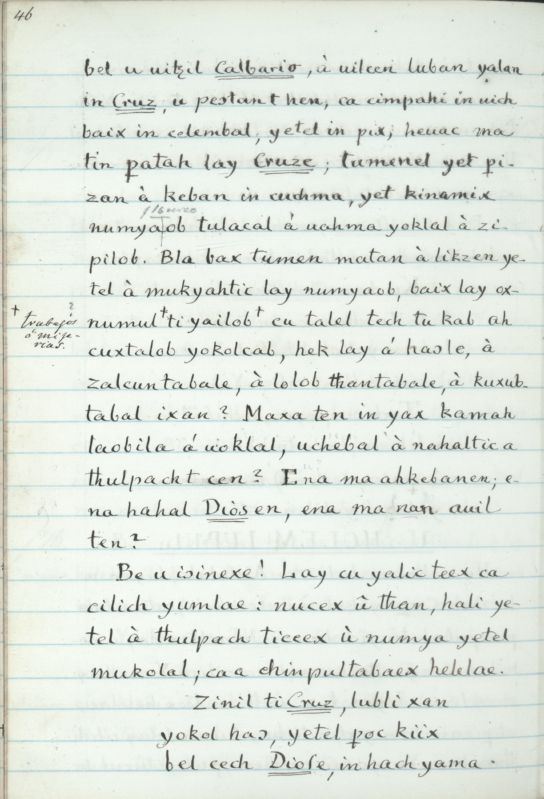 46
bel u uitzil Calbario, à uilcen luban yalan
in Cruz, u pestan t hen, ca cimpahi in uich
baix in celembal, yetel in pix; heuac ma
tin patah lay Cruze; tumenel yet pi-
zan à keban in cuchma, yet kinamix
numyaob tulacal á uahma yoklal à zi-
pilob. Bla bax tumen matan à likzen ye-
tel à mukyahtic lay numyaob, baix lay ox-
numul ✝ ti yailob ✝ cu talel tech tu kab ah
✝ trabajos ?
ó mise-
rias.
cuxtalob yokolcab, hek lay á haɔle, à
zalcuntabale, à lolob thantabale, à kuxub-
tabal ixan? Maxa ten in yax kamah
laobila á uoklal, uchebal à nahaltic a
thulpacht cen? Ena ma ahkebanen; e-
na hahal Diòs en, ena ma nan auil
ten?
Be u iɔinexe! Lay cu yalic teex ca
cilich yumlae: nucex û than, hali ye-
tel à thulpach ticeex ù numya yetel
mukolal; ca a chinpultabaex helelae.
Zinil ti Cruz, lubli xan
yokol haɔ, yetel poc kiix
bel cech Diose, in hach yama.